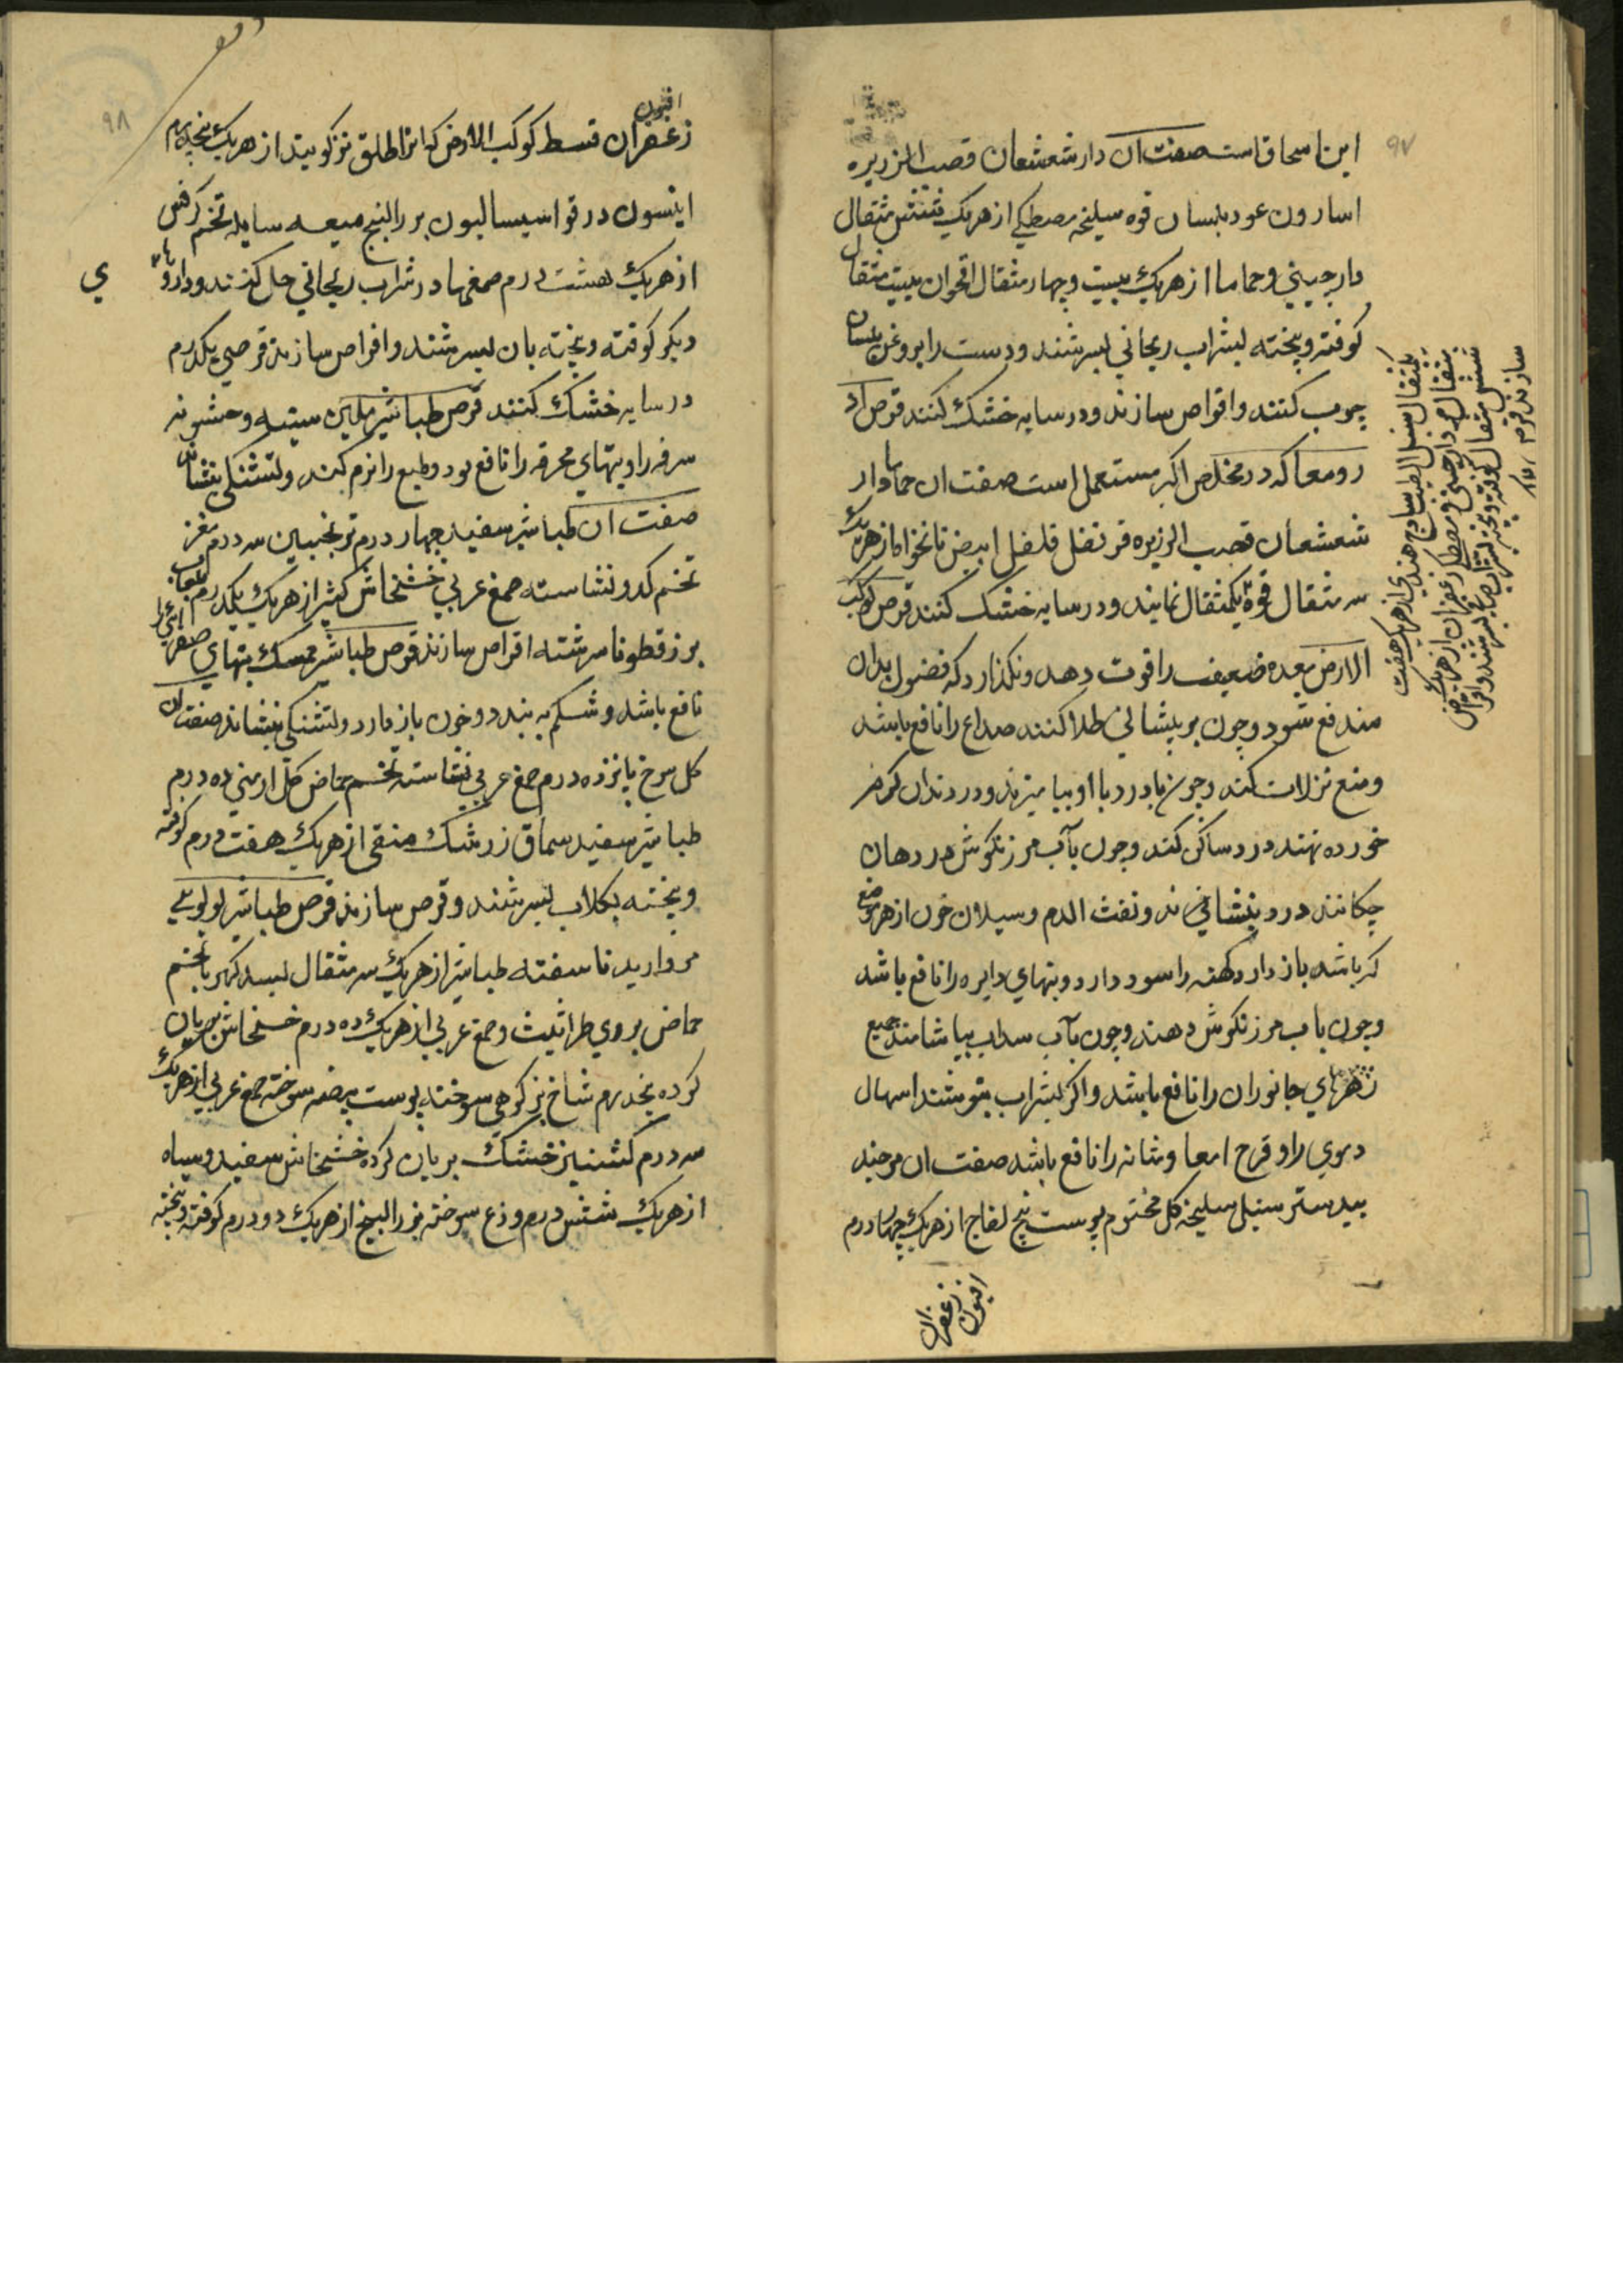 ۹۷
ابن اسحاق است صفت آن دارشعشعان قصب الزریره
اسارون عود بلسان قوه سلیخه مصطکی از هریک شش مثقال
دارچینی و حماما از هریک بیست و چهار مثقال اقحوان بیست مثقال
کوفته و بیخته بشراب ریحانی بسرشند و دست را بروغن بلسان
چرب کنند و اقراص سازند و در سایه خشک کنند قرص
رومعا که در مخلص اکبر مستعمل است صفت ان حماما دار
شعشعان قصب الزریره قرنفل فلفل ابیض نانخواه از هریک
سه مثقال قوه یکمثقال نمایند و در سایه خشک کنند قرص کوکب
الارض معده ضعیف را قوت دهد و نکذارد که فضول بدان
مندفع شود و چون بر پیشانی طلا کنند صداع را نافع باشد
و منع نزلات کند و چون با دردبا او بیامیزند و در دندان کرم
خورده نهند درد ساکن کند و چون بآب مرزنکوش در دهان
چکانند درد بنشاند و نفث الدم و سیلان خون از هر موضع
که باشد باز دارد کهنه را سود دارد و تبهای دایره را نافع باشد
و چون باب مرزنکوش دهند و چون بآب سداب بیاشامند جمیع
زهرهای جانوران را نافع باشد و اکر بشراب بنوشند اسهال
دموی را و قرح امعا و مثانه را نافع باشد صفت ان مر جند
بیدستر سنبل سلیخه کل مختوم پوست بیخ لفاح از هریک چهار درم
افیون
زعفران
یکمثقال سنبل الطیب سادج هندی از هریک هفت
مثقال مر دارچینی مصطکی زعفران از هریک
شش مثقال کوفته و بیخته بشراب بسرشند و اقراص
سازند
۹۸
افیون
زعفران قسط کوکب الارض که انرا طلق نیز کویند از هریک پنجدرم
انیسون درقو اسیسالیون بزرالبنج میعه سایله تخم کرفس
از هریک هشت درم صمغها در شراب ریحانی حل کنند و داروهاء
ی
دیکر کوفته و بیخته بان بسرشند و اقراص سازند قرصی یکدرم
در سایه خشک کنند قرص طباشیر ملین سینه و خشونه
سرفه را و تبهای محرقه را نافع بود و طبع را نرم کند و تشنکی بنشاند
صفت ان طباشیر سفید چهار درم ترنجبین سه درم مغز
تخم کدو نشاسته صمغ عربی خشخاش کثیرا از هریک یکدرم بلعاب
بزرقطونا سرشته اقراص سازند قرص طباشیر ممسک تبهای صفرائی را
نافع باشد و شکم به بندد و خون باز دارد و تشنکی بنشاند صفت ان
کل سرخ پانزده درم صمغ عربی نشاسته تخم حماض کل ارمنی ده درم
طباشیر سفید سماق زرشک منقی از هریک هفت درم کوفته
و بیخته بکلاب بسرشند و قرص سازند قرص طباشیر لولویی
مروارید ناسفته طباشیر از هریک سه مثقال بسد کهربا تخم
حماض بروی طراثیث و صمغ عربی از هریک ده درم خشخاش بریان
کرده پنجدرم شاخ بز کوهی سوخته پوست بیضه سوخته صمغ عربی از هریک
سه درم کشنیز خشک بریان کرده خشخاش سفید و سیاه
از هریک شش درم وزع سوخته بزرالبنج از هریک دو درم کوفته و بیخته